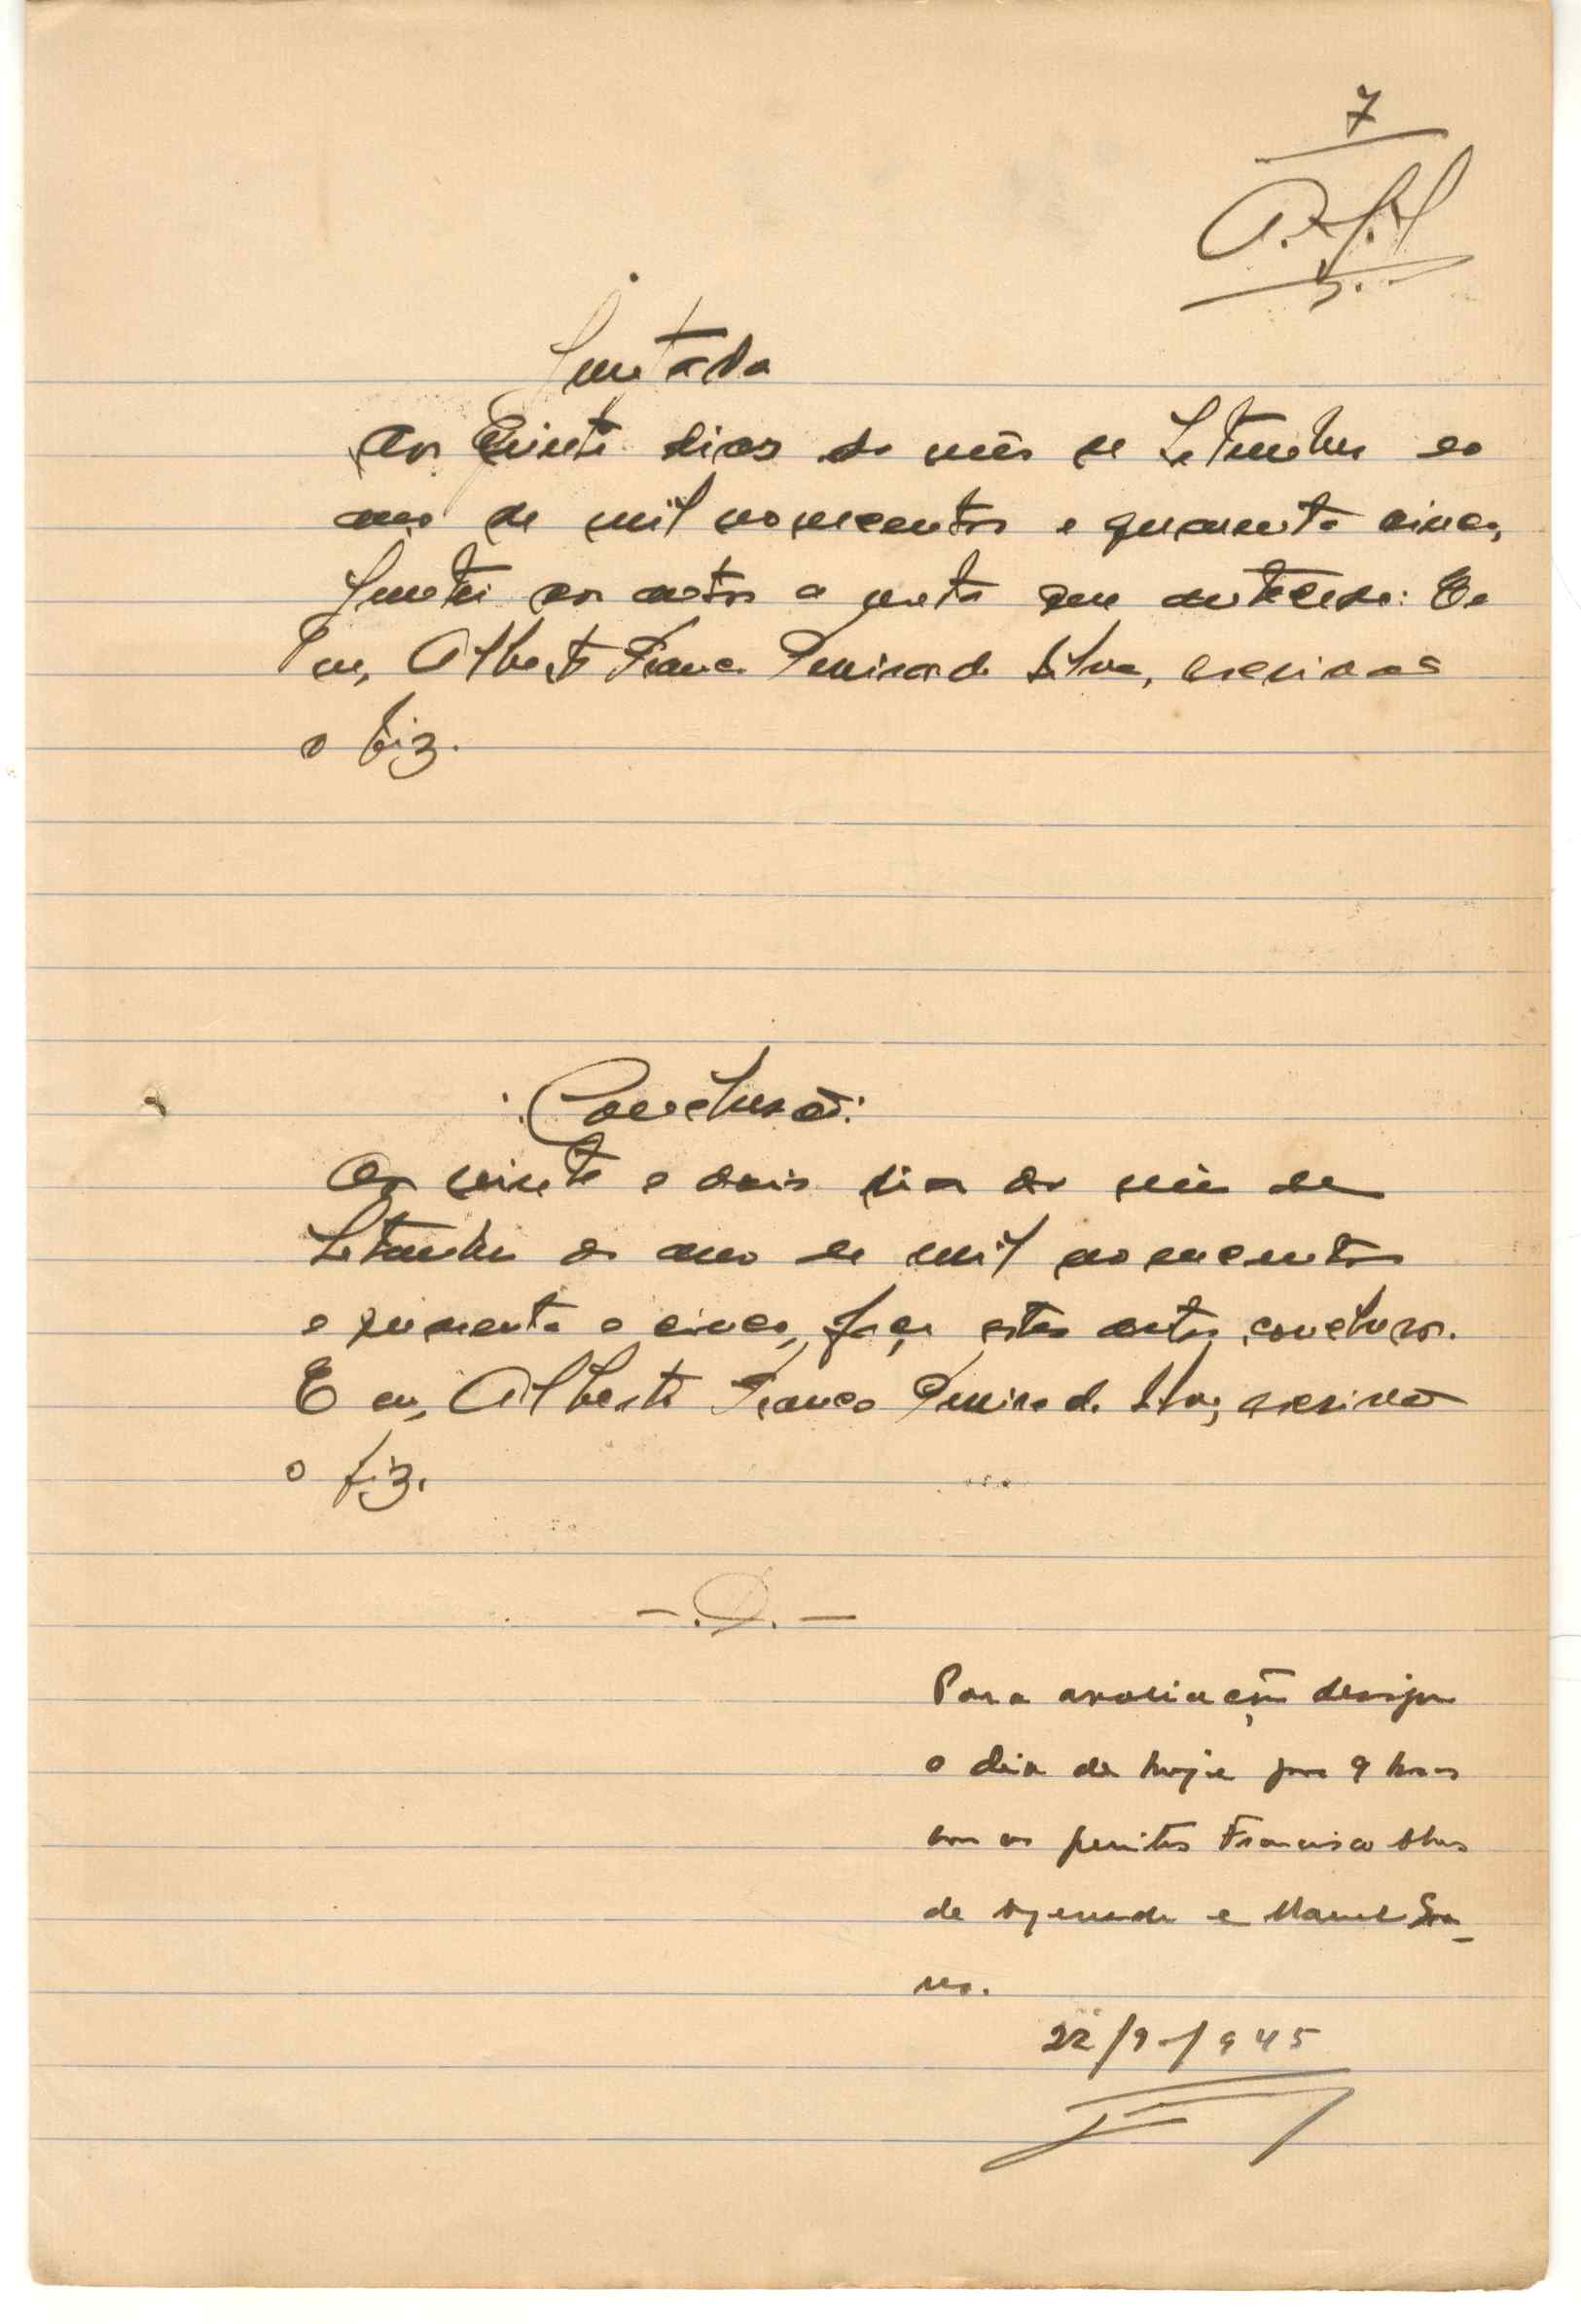 7
Juntada
Aos vinte dias do mês de Setembro do
ano de mil novecentos e quarenta cinco,
juntei aos autos a que antecede: E
eu, Alberto Franco Pereira da Silva, escrivão
o fiz.
Conclusão:
Aos vinte e dois dia do mês de
Setembro do ano de mil novecentos
e quarenta e cinco, faço estes autos conclusos.
E eu, Alberto Franco Pereira da Silva, escrivão
o fiz.
-.D.-
Para avaliação designo
o dia de hoje as 9 horas
com os peritos Francisco
de e Manuel Soa-
res.
22/9-/945